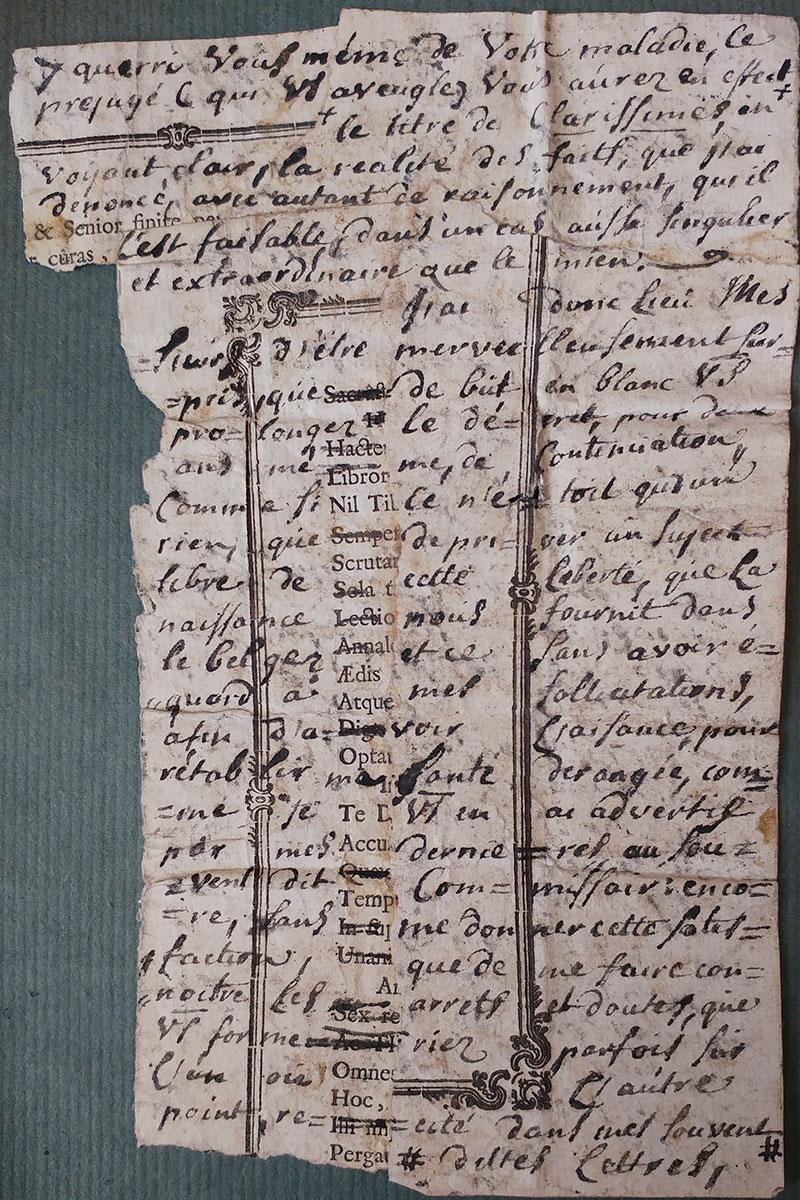 querri Vous même de Votre maladie, le
prejugé ( qui Vs aveugle) Vous aúrez en effect
+ le titre de Clarissimes, en +
voyant clair, la realité des faits, que j'ai
denoncé, avec autant de raisonnement, qu'il
& Senior finite
c'est faisable, dans un cas aússi singulier
r curas,
et extraordinaire que le mien.
j'ai donc lieu Mes
=sieurs d'être merveilleusement sur=
=pris, que de bút en blanc Vs
prolongez le décret, pour deux
ans même, de Continuation,
Comme si ce n'étoit qu'un
rien, que de priver un suject
libre de cette leberté, que la
naissance nous fournit dans
le belgez et ce sans avoir é=
gard à mes sollicitations,
afin d'avoir l'aisance, pour
rétablir ma santé derangée, com=
=me je Vs en ai advertis
par mes dernieres, au sou=
=vent dit Commissair: enco=
=re, sans me donner cette satis=
faction, que de me faire con=
noitre les arrets et doutes, que
Vs formeriez parfois sur
l'un ou l'aútre
point, re=cité dans mes souvent #
# dittes lettres,
Hacte
Libror
Nil Til
Semper
Scrutar
Sola t
Lectio
Annal
Ædis
Atque
Optat
Te L
Accu
Temp
Unani
Sex re
Omnes
Hoc,
Perga